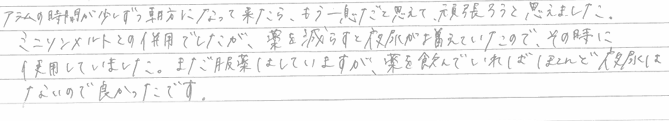 アラームの時間が少しずつ朝方になって来たら、もう一息だと思えて、頑張ろうと思えました。
ミニリンメルトとの併用でしたが、薬を減らすと夜尿が増えていたので、その時に
使用していました。まだ服薬はしていますが、薬を飲んでいればほとんど夜尿は
ないので良かったです。